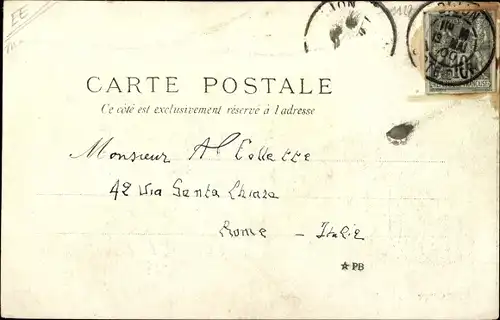 EE
CARTE POSTALE
Ce côté est exclusivement réservé à l'adresse
Monsieur Al Collette
42 Via Santa Chiara
Rome - Italie
★PB